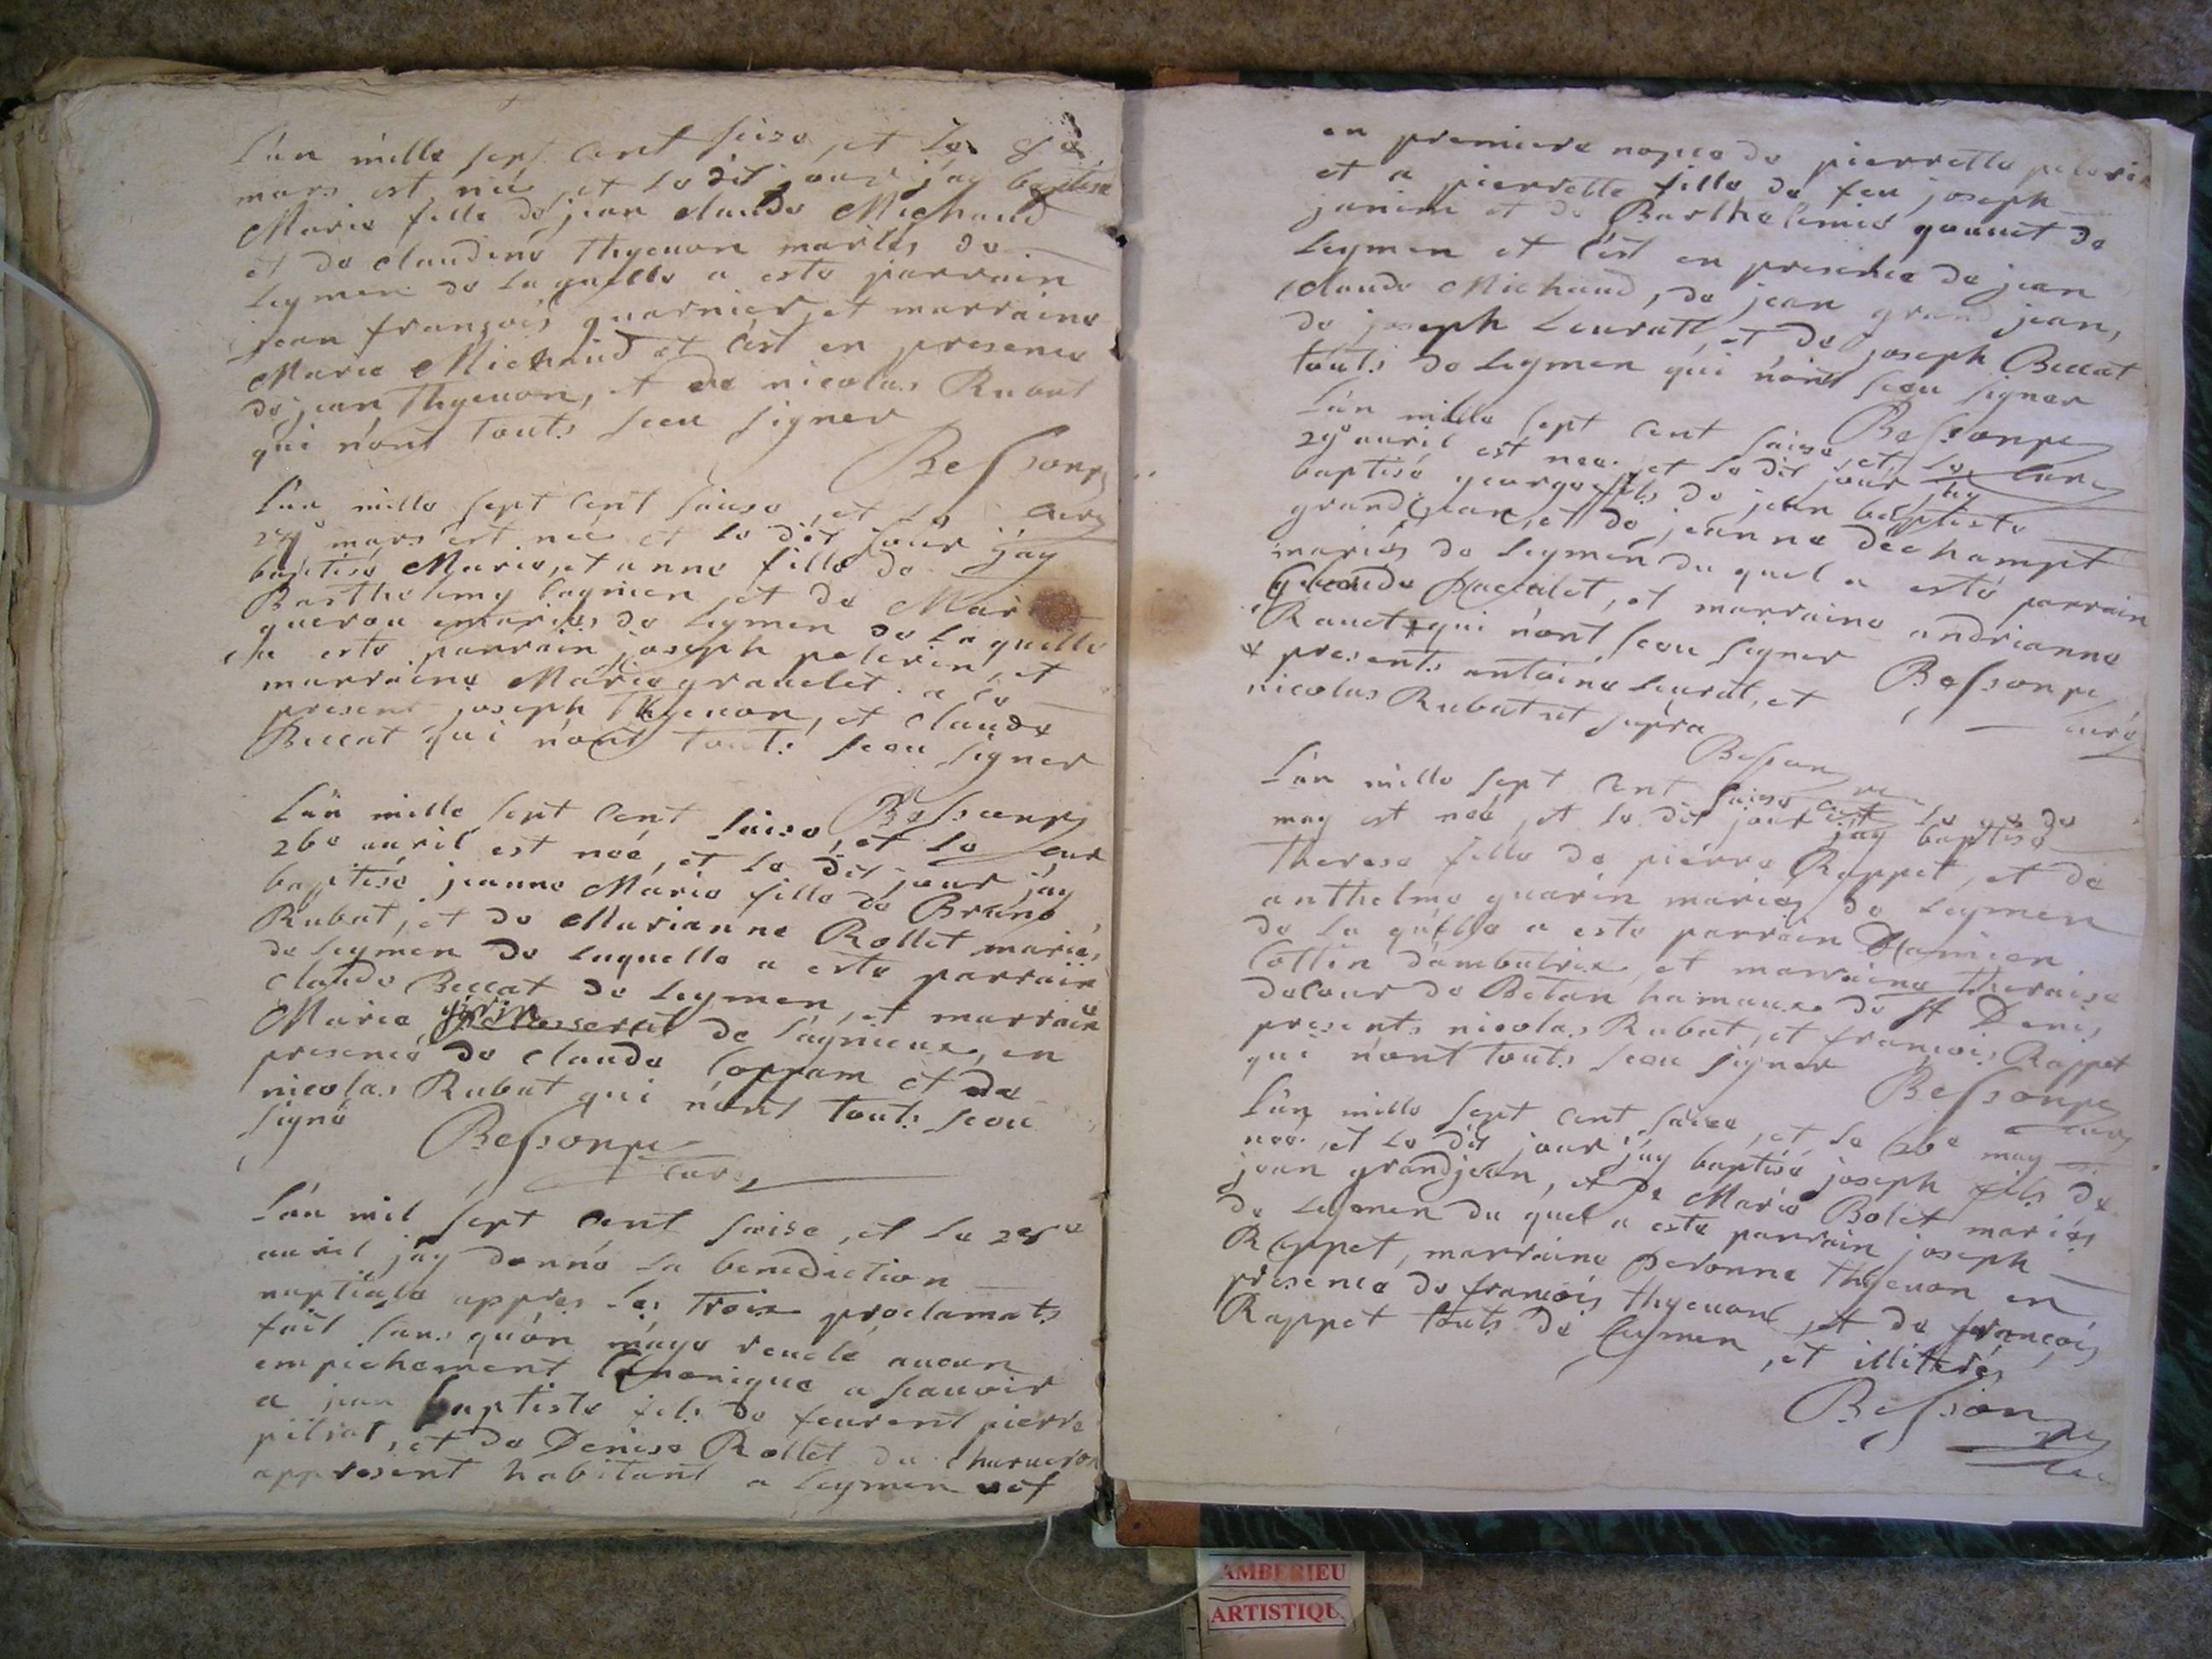 L'an mille sept cent saise, et le 8e
mars est neé et le dit jour j'ay baptisé
Marie fille de jean claude Michaud
et de claudine thyeuon mariés de
Leymen de la quelle a esté parrain
jean françois guarnier, et marraine
Marie Michaud et c'est en presence
de jean Thyeuon, et de nicolas Rubat
qui n'ont touts sceu signer
Bessonpe
curé
L'an mille sept cent saise, et le
mars est neé et le dit jour j'ay
baptisé Marie, et anne fille de
Barthelemy et de
mariés de Leymen de la quelle
a esté parrain joseph pelerin, et
marraine Marie grauelet a ce
present joseph Thyeuon, et claude
Beccat qui n'ont touts sceu signer
Bessonpe
curé
L'an mille sept cent saise, et le
26e auril est neé, et le dit jour j'ay
baptisé jeanne Marie fille de Bruno
Rubat, et de Marianne Rollet mariés
de Leymen de laquelle a esté parrain
claude Beccat de Leymen, et marraine
Marie de Lagnieux, en
presence de claude et de
nicolas Rubat qui n'ont touts sceu
signé Bessonpe
curé
L'an mil sept cent saise, et le 28e
auril j'ay donné la benediction
nuptiale appres les trois proclamats
fait sans qu'on m'aye reuelé aucun
empichement Canonique a scauoir
a jean baptiste fils de feurent pierre
piljat, et de Denise Rollet du
appresent habitant a Leymen
en premiere nopce de pierrette pelerin
et a pierrette fille de feu joseph
janin et de Barthelemie gonnet de
Leymen et c'est en presence de jean
claude Michaud, de jean grand jean,
de joseph Leuratt, et de joseph Beccat
touts de Leymen qui n'ont sceu signer
Bessonpe
curé
L'an mille sept cent saise, et le
29e auril est neé et le dit jour j'ay
baptisé george fils de jean baptiste
grandjean, et de jeanne déchampt
mariés de Leymen du quel a esté parrain
claude et marraine andrianne
Rauet qui n'ont sceu signer
Bessonpe
curé
presents antoine Leurat, et
nicolas Rubat ut supra
Besson
L'an mille sept cent saise, et le de
may est neé, et le dit jour j'ay baptisé
therese fille de piérre Rappet, et de
anthelme guarin mariés de Leymen
de la quélle a esté parrain Damien
Cottin d'ambutrix, et marraine theraise
de Betan hamaux de St Denis
presents nicolas Rubat, et françois Rappet
qui n'ont touts sceu signer
Bessonpe
curé
L'an mille sept cent saise, et le may
neé, et le dit jour j'ay baptisé joseph fils de
jean grandjean, et de Marie Bolet mariés
de Leymen du quel a esté parrain joseph
Rappet, marraine Peronne thyeuon en
presence de francois thyeuont, et de françois
Rappet touts de Leymen, et illiterés
Besson
AMBERIEU
ARTISTIQU